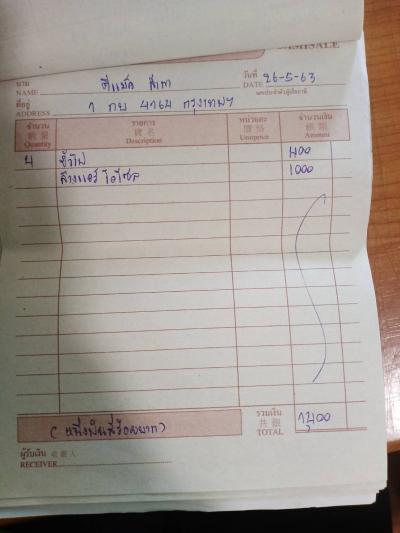 CASHSALE
นาม NAME ตีแม็ค สาขา วันที่ DATE 26-5-63
ที่อยู่ ADDRESS 1 กย 4764 กรุงเทพฯ
จำนวน รายการ หน่วยละ จำนวนเงิน
數量 貨名 價格 銀額
Quantity Description Unitprice Amount
4 ขั้วไฟ 400
ล้างแอร์ ไอโซล 1000
(หนึ่งพันสี่ร้อยบาท) รวมเงิน 共銀 TOTAL 1,400
ผู้รับเงิน 收銀人
RECEIVER